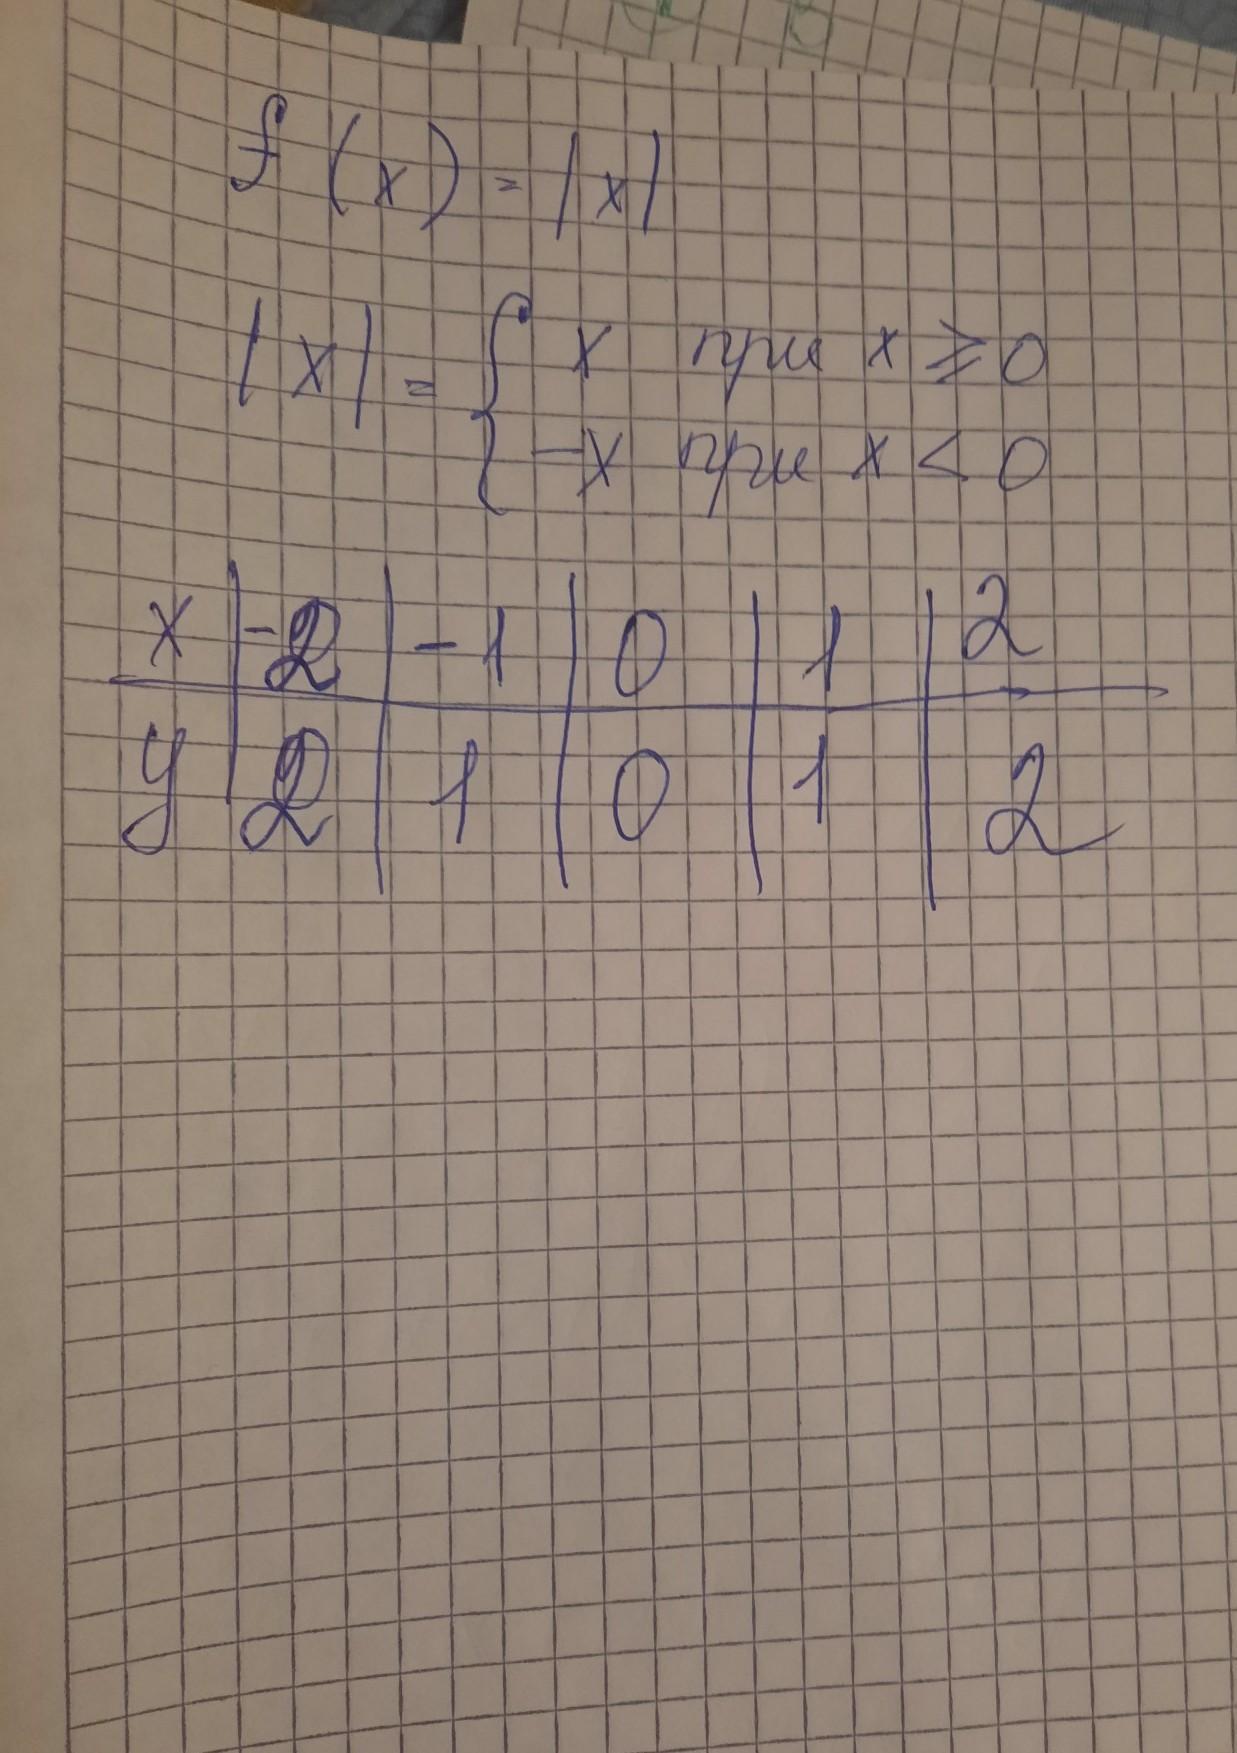 f(x) = |x|
|x| = { x при x ⩾ 0
-x при x < 0
x | -2 | -1 | 0 | 1 | 2
y | 2 | 1 | 0 | 1 | 2